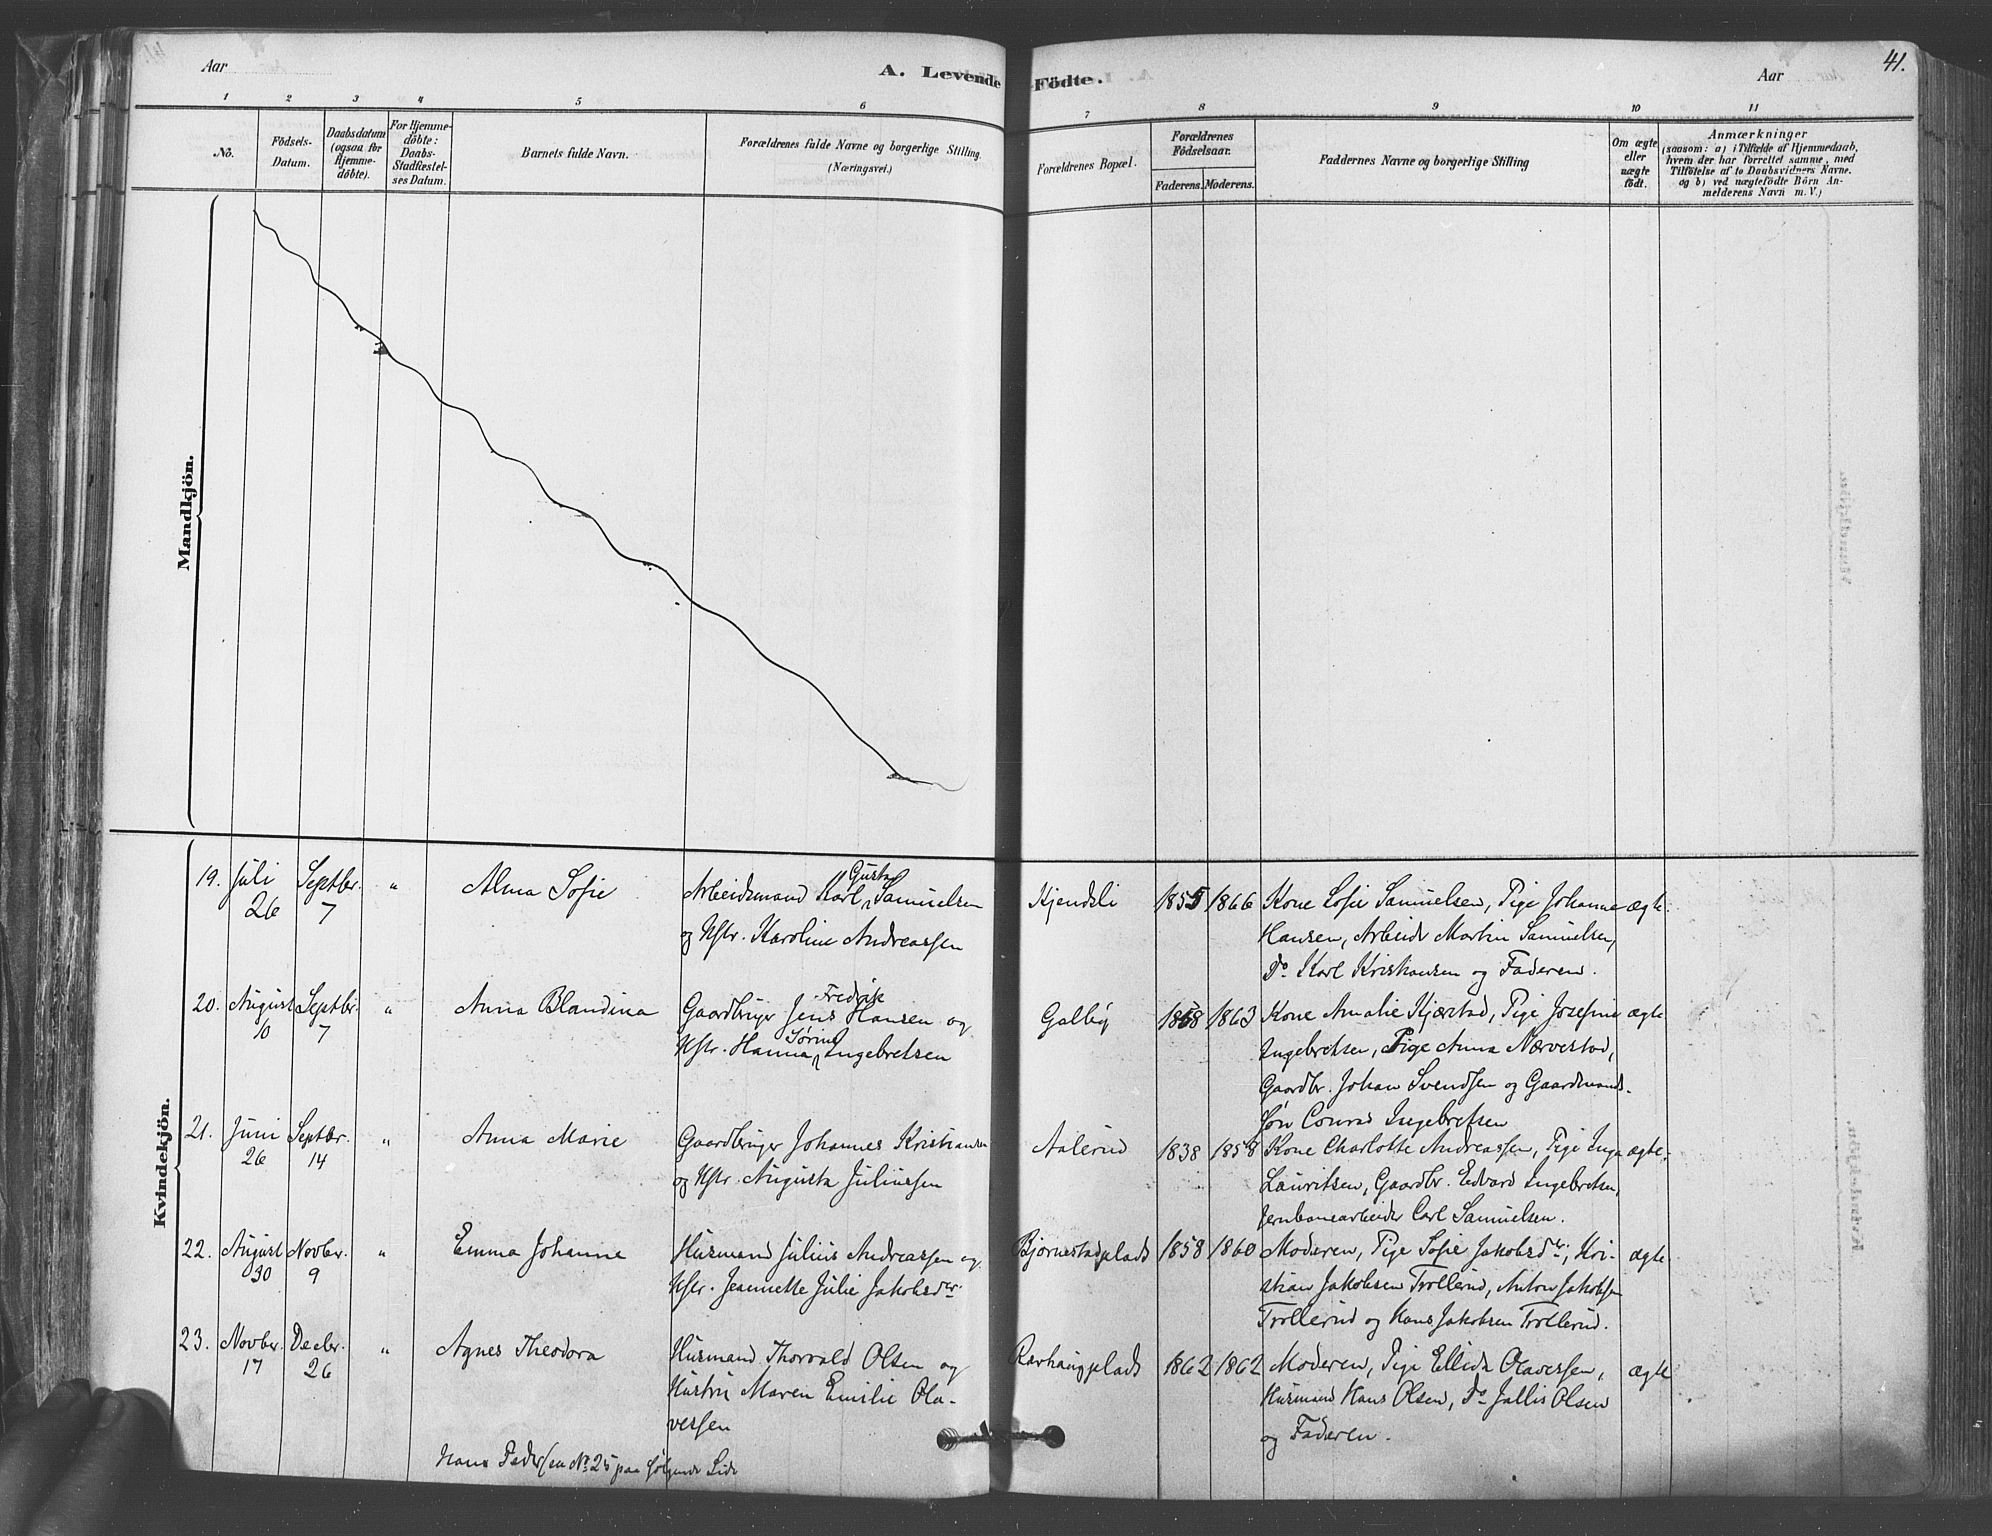 Aar
A. Levende Födte.
Aar
41.
1 2 3 4 5 6 7 8 9 10 11
No.
Födsels-
Datum.
Daabsdatum
(ogsaa for
Hjemme-
döbte).
For Hjemme-
döbte:
Daabs-
Stadfæstel-
ses Datum.
Barnets fulde Navn.
Forældrenes fulde Navne og borgerlige Stilling
(Næringsvei.)
Forældrenes Bopæl.
Forældrenes
Födselsaar.
Faderens. Moderens.
Faddernes Navne og borgerlige Stilling
Om ægte
eller
uægte
födt.
Anmærkninger
(saasom: a) i Tilfælde af Hjemmedaab,
hvem der har forrettet samme, med
Tilföielse af to Daabsvidners Navne.
og b) ved uægtefödte Börn An-
melderens Navn m. V.)
Mandkjön.
Kvindekjön.
19. Juli 26 Septbr. 7 " Alma Sofie
Arbeidsmand Karl Gustav Samuelsen
og Hstr. Karoline Andreassen
Kjendsli 1855 1866
Kone Sofie Samuelsen, Pige Johanne
Hansen, Arbeidr Martin Samuelsen,
Do Karl Kristiansen og Faderen.
ægte.
20. August 10 Septbr. 7 " Anna Blandina
Gaardbruger Jens Fredrik Hansen og
Hstr. Hanna Sørine Ingebretsen
Galby 1858 1863
Kone Amalie Kjærstad, Pige Josefine
Ingebretsen, Pige Anna Nærvestad,
Gaardbr. Johan Svendsen og Gaardmands-
søn Conrad Ingebretsen
ægte
21. Juni 26 Septbr. 14 " Anna Marie
Gaardbruger Johannes Kristiansen
og Hstr. Augusta Juliussen
Aalerud 1838 1858
Kone Charlotte Andreassen, Pige Inga
Lauritsen, Gaardbr. Edvard Ingebretsen,
Jernbanearbeider Carl Samuelsen.
ægte.
22. August 30 Novbr. 9 " Emma Johanne
Husmand Julius Andreassen og
Hstr. Jeannette Julie Jakobsdtr.
Bjørnestadplads 1858 1860
Moderen, Pige Sofie Jakobsdtr., Kri-
stian Jakobsen Trollerud, Anton Jakobsen
Trollerud og Hans Jakobsen Trollerud.
ægte.
23. Novbr. 17 Decbr. 26 " Agnes Theodora
Husmand Thorvald Olsen og
Hustru Maren Emilie Ola-
vessen
Ravhaugplads 1862 1862
Moderen, Pige Ellida Olavessen,
Husmand Hans Olsen, Do Jallis Olsen
og Faderen.
ægte
No 25 paa følgende Side